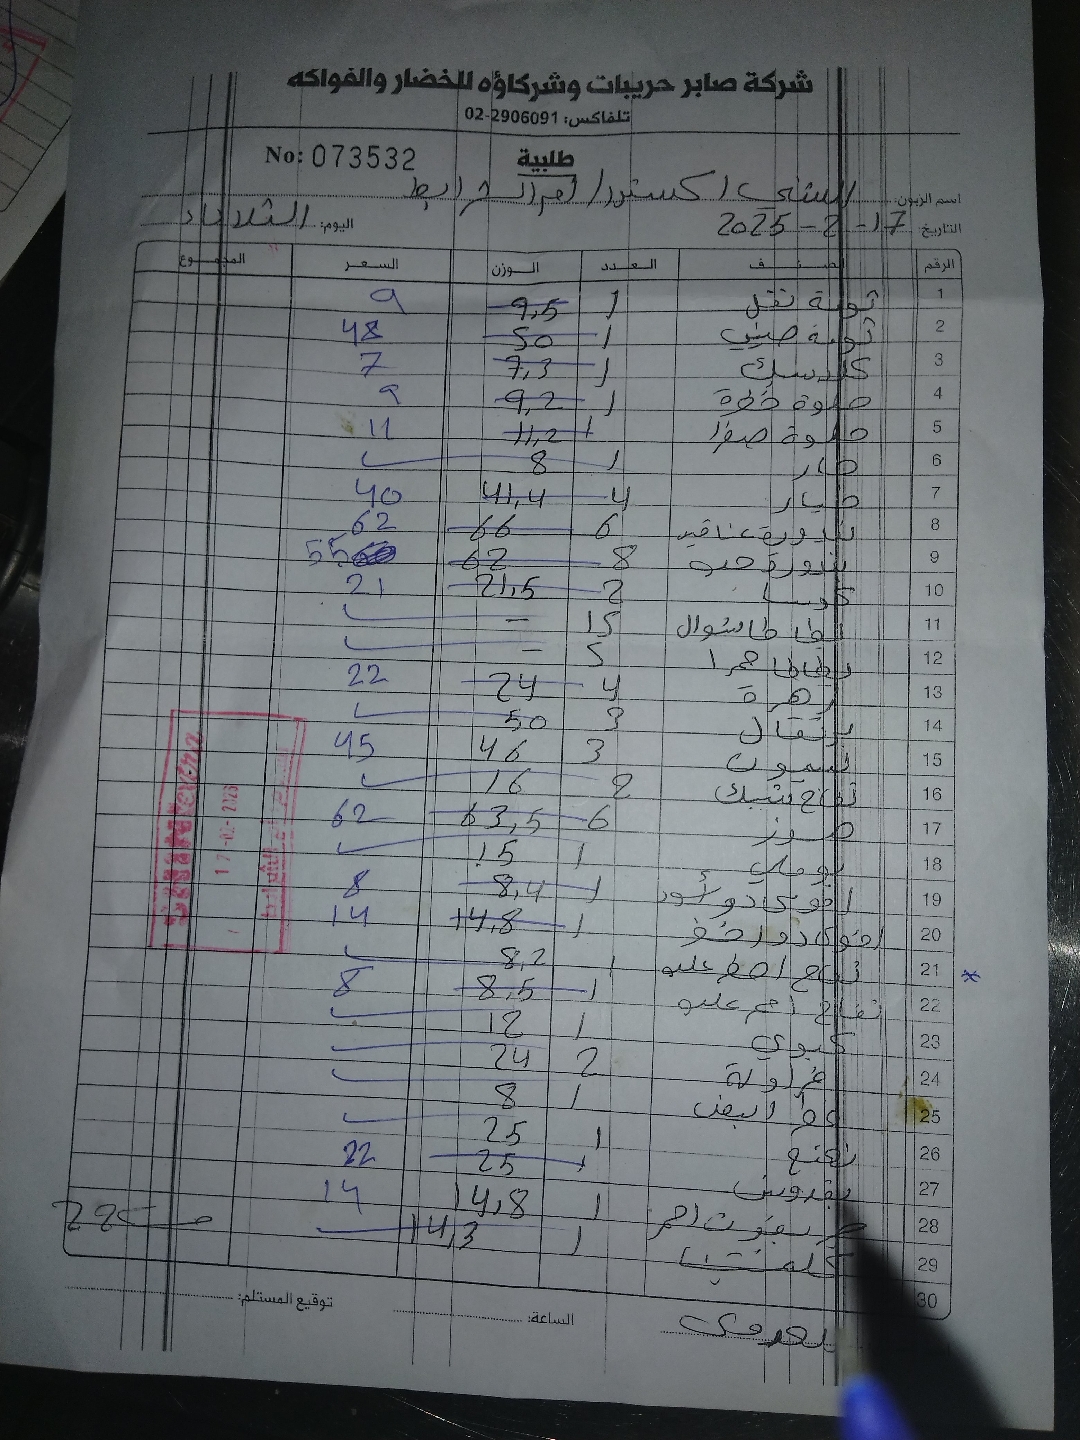 شركة صابر حريبات وشركاؤه للخضار والفواكه
تلفاكس: 02-2906091
طلبية
No: 073532
اسم الزبون: السني اكسترا / ام الشرايط
التاريخ: 17-2-2025 اليوم: الثلاثاء
الرقم الصنف العدد الوزن السعر المجموع
1 ثومة تقل 1 9,5 9
2 ثومة صيني 1 50 48
3 1 7,3 7
4 حلوة خضرة 1 9,2 9
5 حلوة صفرا 1 11,2 11
6 حار 1 8
7 خيار 4 41,4 40
8 بندورة عناقيد 6 66 62
9 بندورة حبة 8 62 55
10 كوسا 2 21,5 21
11 بطاطا شوال 15 -
12 بطاطا حمرا 5 -
13 زهرة 4 24 22
14 برتقال 3 50
15 ليمون 3 46 45
16 تفاح شبك 2 16
17 موز 6 63,5 62
18 بوملي 1 15
19 افوكادو أسود 1 8,4 8
20 افوكادو اخضر 1 14,8 14
21 تفاح اصفر علبه 1 8,2
22 تفاح احمر علبه 1 8,5 8
23 كيوي 1 12
24 فراولة 2 24
25 فطر ابيض 1 8
26 نعنع 1 25
27 بقدونس 1 25 22
28 جريفوت احمر 1 14,8 14
29 كلمنتينا 1 14,3
30
الساعة: توقيع المستلم: